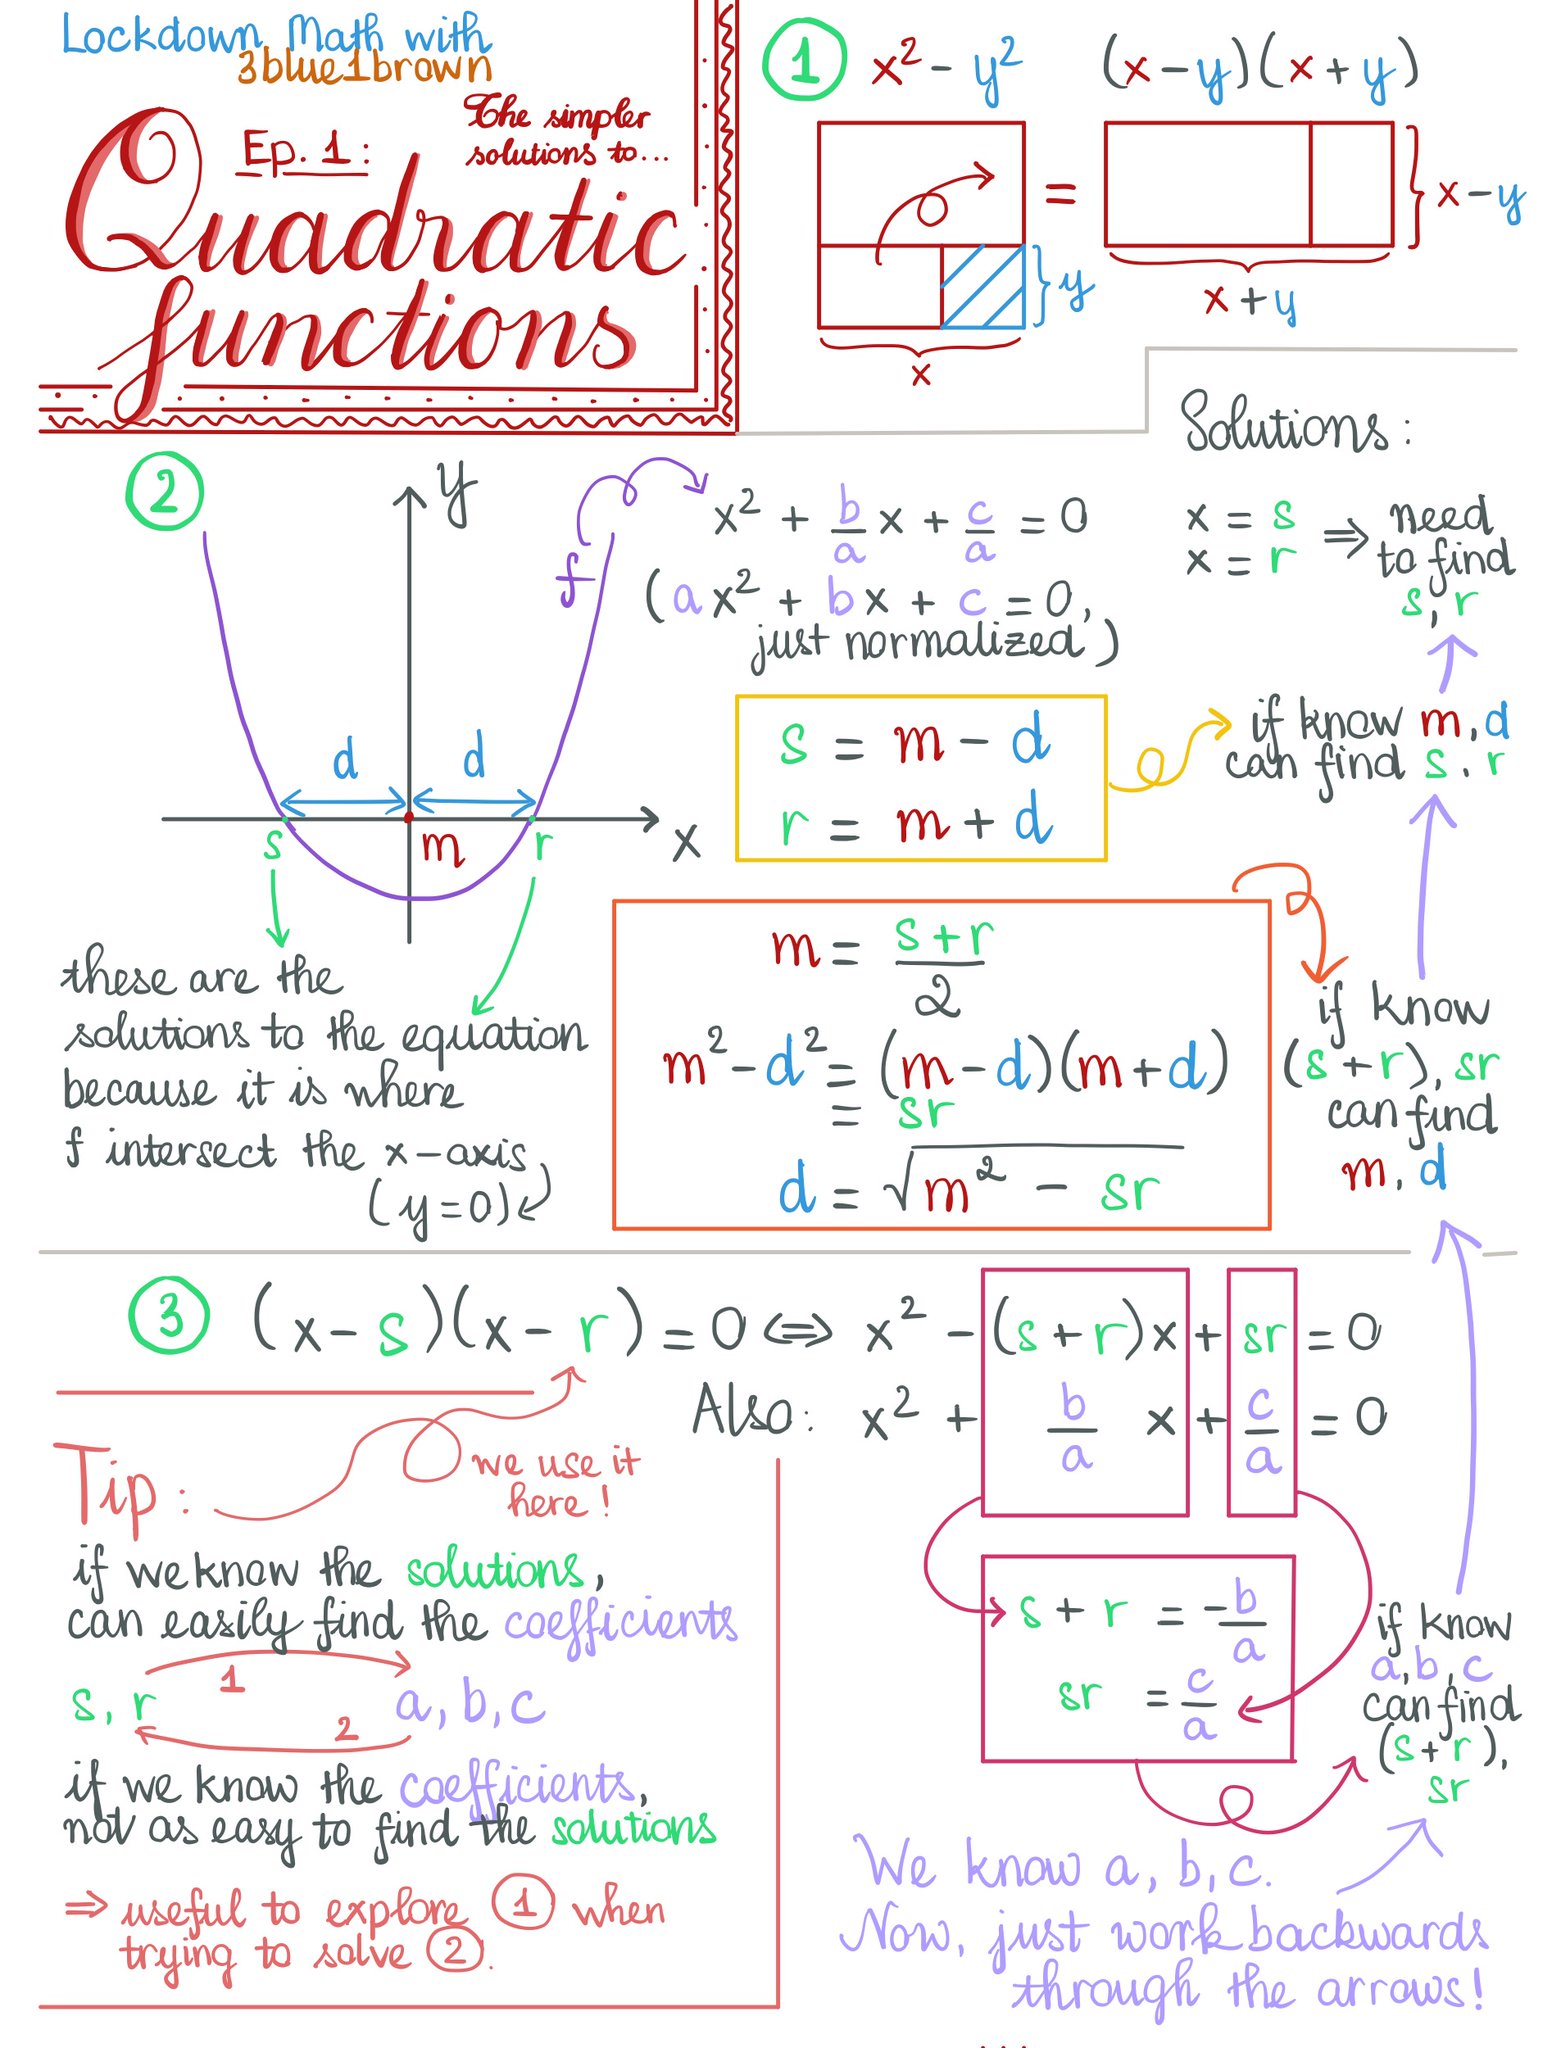 Lockdown Math with
3blue1brown
Ep. 1:
The simpler
solutions to...
Quadratic
functions
1
x² - y²
(x - y)(x + y)
=
x - y
y
x + y
x
2
y
f
d
d
s
m
r
x
x² + b/a x + c/a = 0
(ax² + bx + c = 0,
just normalized)
Solutions:
x = s
x = r
⇒ need
to find
s, r
s = m - d
r = m + d
if know m, d
can find s, r
these are the
solutions to the equation
because it is where
f intersect the x-axis
(y=0)
m = s+r/2
m² - d² = (m - d)(m + d)
= sr
d = √m² - sr
if know
(s + r), sr
can find
m, d
3
(x - s)(x - r) = 0 ⇔ x² - (s + r)x + sr = 0
Also: x² + b/a x + c/a = 0
Tip:
we use it
here!
if we know the solutions,
can easily find the coefficients
1
s, r
a, b, c
2
if we know the coefficients,
not as easy to find the solutions
⇒ useful to explore 1 when
trying to solve 2.
s + r = -b/a
sr = c/a
if know
a, b, c
can find
(s + r),
sr
We know a, b, c.
Now, just work backwards
through the arrows!